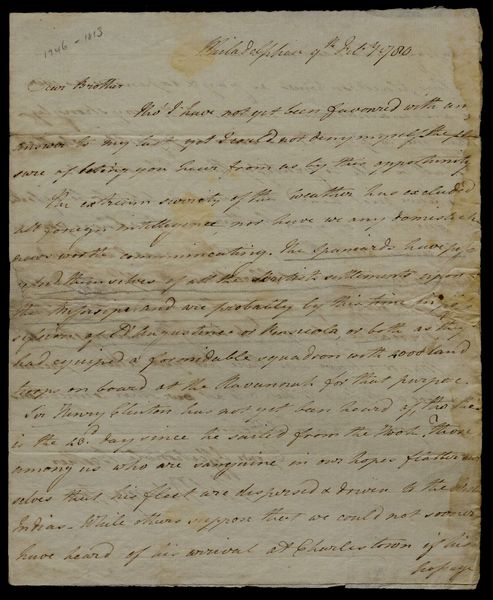 1746-1813
Philadelphia 9th Feby 1780.
Dear Brother
Tho' I have not yet been favoured with an
answer to my last yet I could not deny myself the plea
sure of letting you hear from us by this opportunity
The extream severity of the Weather has excluded
all foreign intelligence nor have we any domestick
news worth communicating. The Spaniards have poss
themselves of all the British settlements upon
the and are probably by this time in
session of St Augustine or Pensacola, or both as they
had equiped a formidable squadron with 4000 land
troops on board at the Havannah for that purpose.
Sir Henry Clinton has not yet been heard of, tho this
is the 46th day since he sailed from the Hook. Those
among us who are sanguine in our hopes flatter our
selves that his fleet are dispersed & driven to the West
Indias. While others suppose that we could not sooner
have heard of his arrival at Charlestown if his